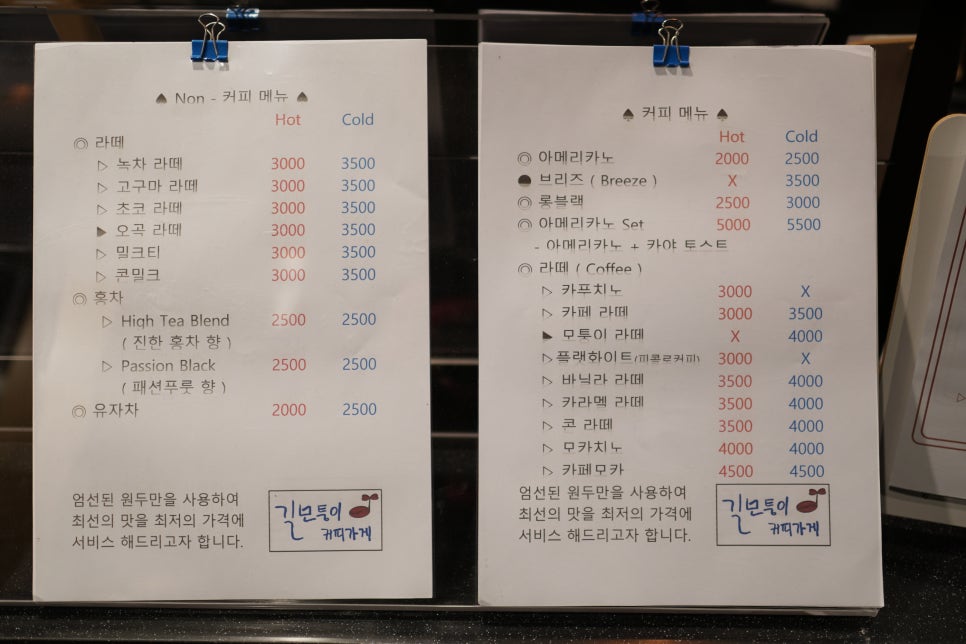 ♠ Non - 커피 메뉴 ♠
Hot Cold
◎ 라떼
▷ 녹차 라떼 3000 3500
▷ 고구마 라떼 3000 3500
▷ 초코 라떼 3000 3500
▶ 오곡 라떼 3000 3500
▷ 밀크티 3000 3500
▷ 콘밀크 3000 3500
◎ 홍차
▷ High Tea Blend 2500 2500
( 진한 홍차 향 )
▷ Passion Black 2500 2500
( 패션푸룻 향 )
◎ 유자차 2000 2500
엄선된 원두만을 사용하여
최선의 맛을 최저의 가격에
서비스 해드리고자 합니다.
길모퉁이
커피가게
♠ 커피 메뉴 ♠
Hot Cold
◎ 아메리카노 2000 2500
● 브리즈 ( Breeze ) X 3500
◎ 롱블랙 2500 3000
◎ 아메리카노 Set 5000 5500
- 아메리카노 + 카야 토스트
◎ 라떼 ( Coffee )
▷ 카푸치노 3000 X
▷ 카페 라떼 3000 3500
▶ 모퉁이 라떼 X 4000
▷플랫화이트(피콜로커피) 3000 X
▷ 바닐라 라떼 3500 4000
▷ 카라멜 라떼 3500 4000
▷ 콘 라떼 3500 4000
▷ 모카치노 4000 4000
▷ 카페모카 4500 4500
엄선된 원두만을 사용하여
최선의 맛을 최저의 가격에
서비스 해드리고자 합니다.
길모퉁이
커피가게